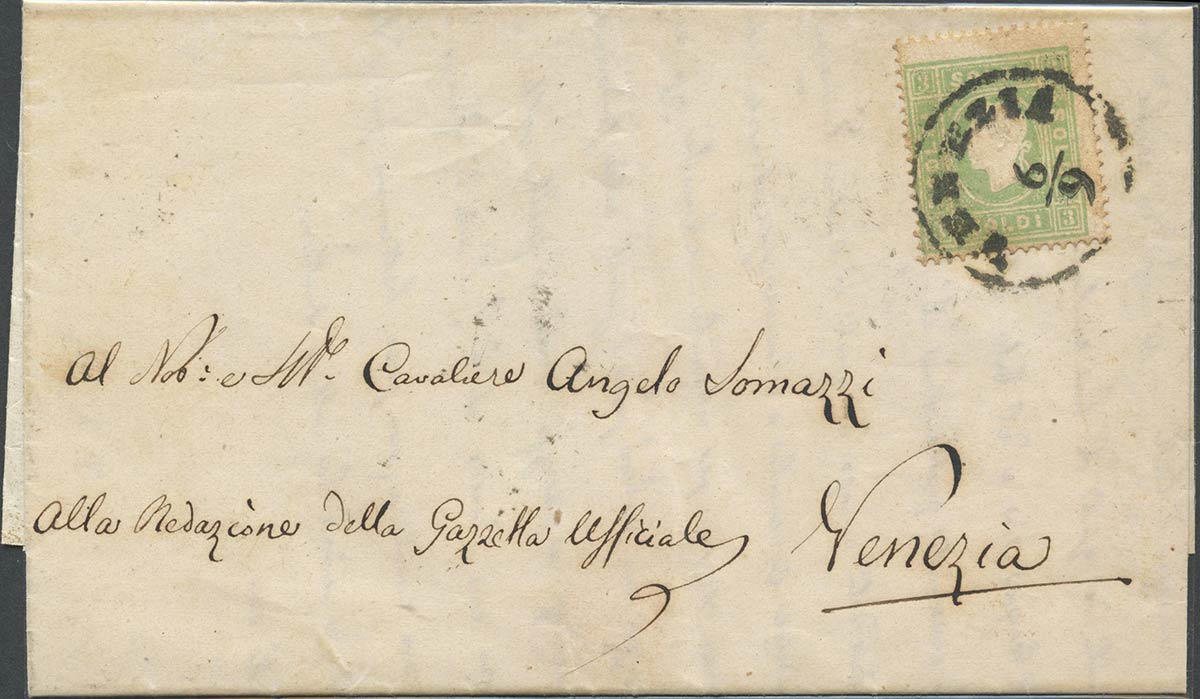 3 SOLDI
VENEZIA
6/9
SOLDI 3
Al Nob: e Ill.e Cavaliere Angelo Somazzi
Alla Redazione della Gazzetta Ufficiale
Venezia